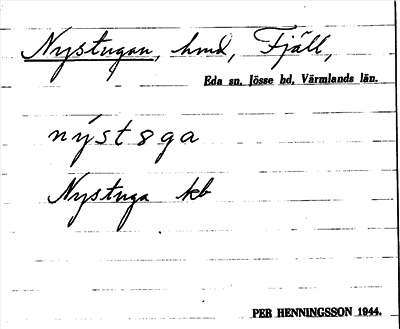 Nystugan, hmd, Fjäll,
Eda sn, Jösse hd, Värmlands län.
nýstsga
Nystuga kb
PER HENNINGSSON 1944.